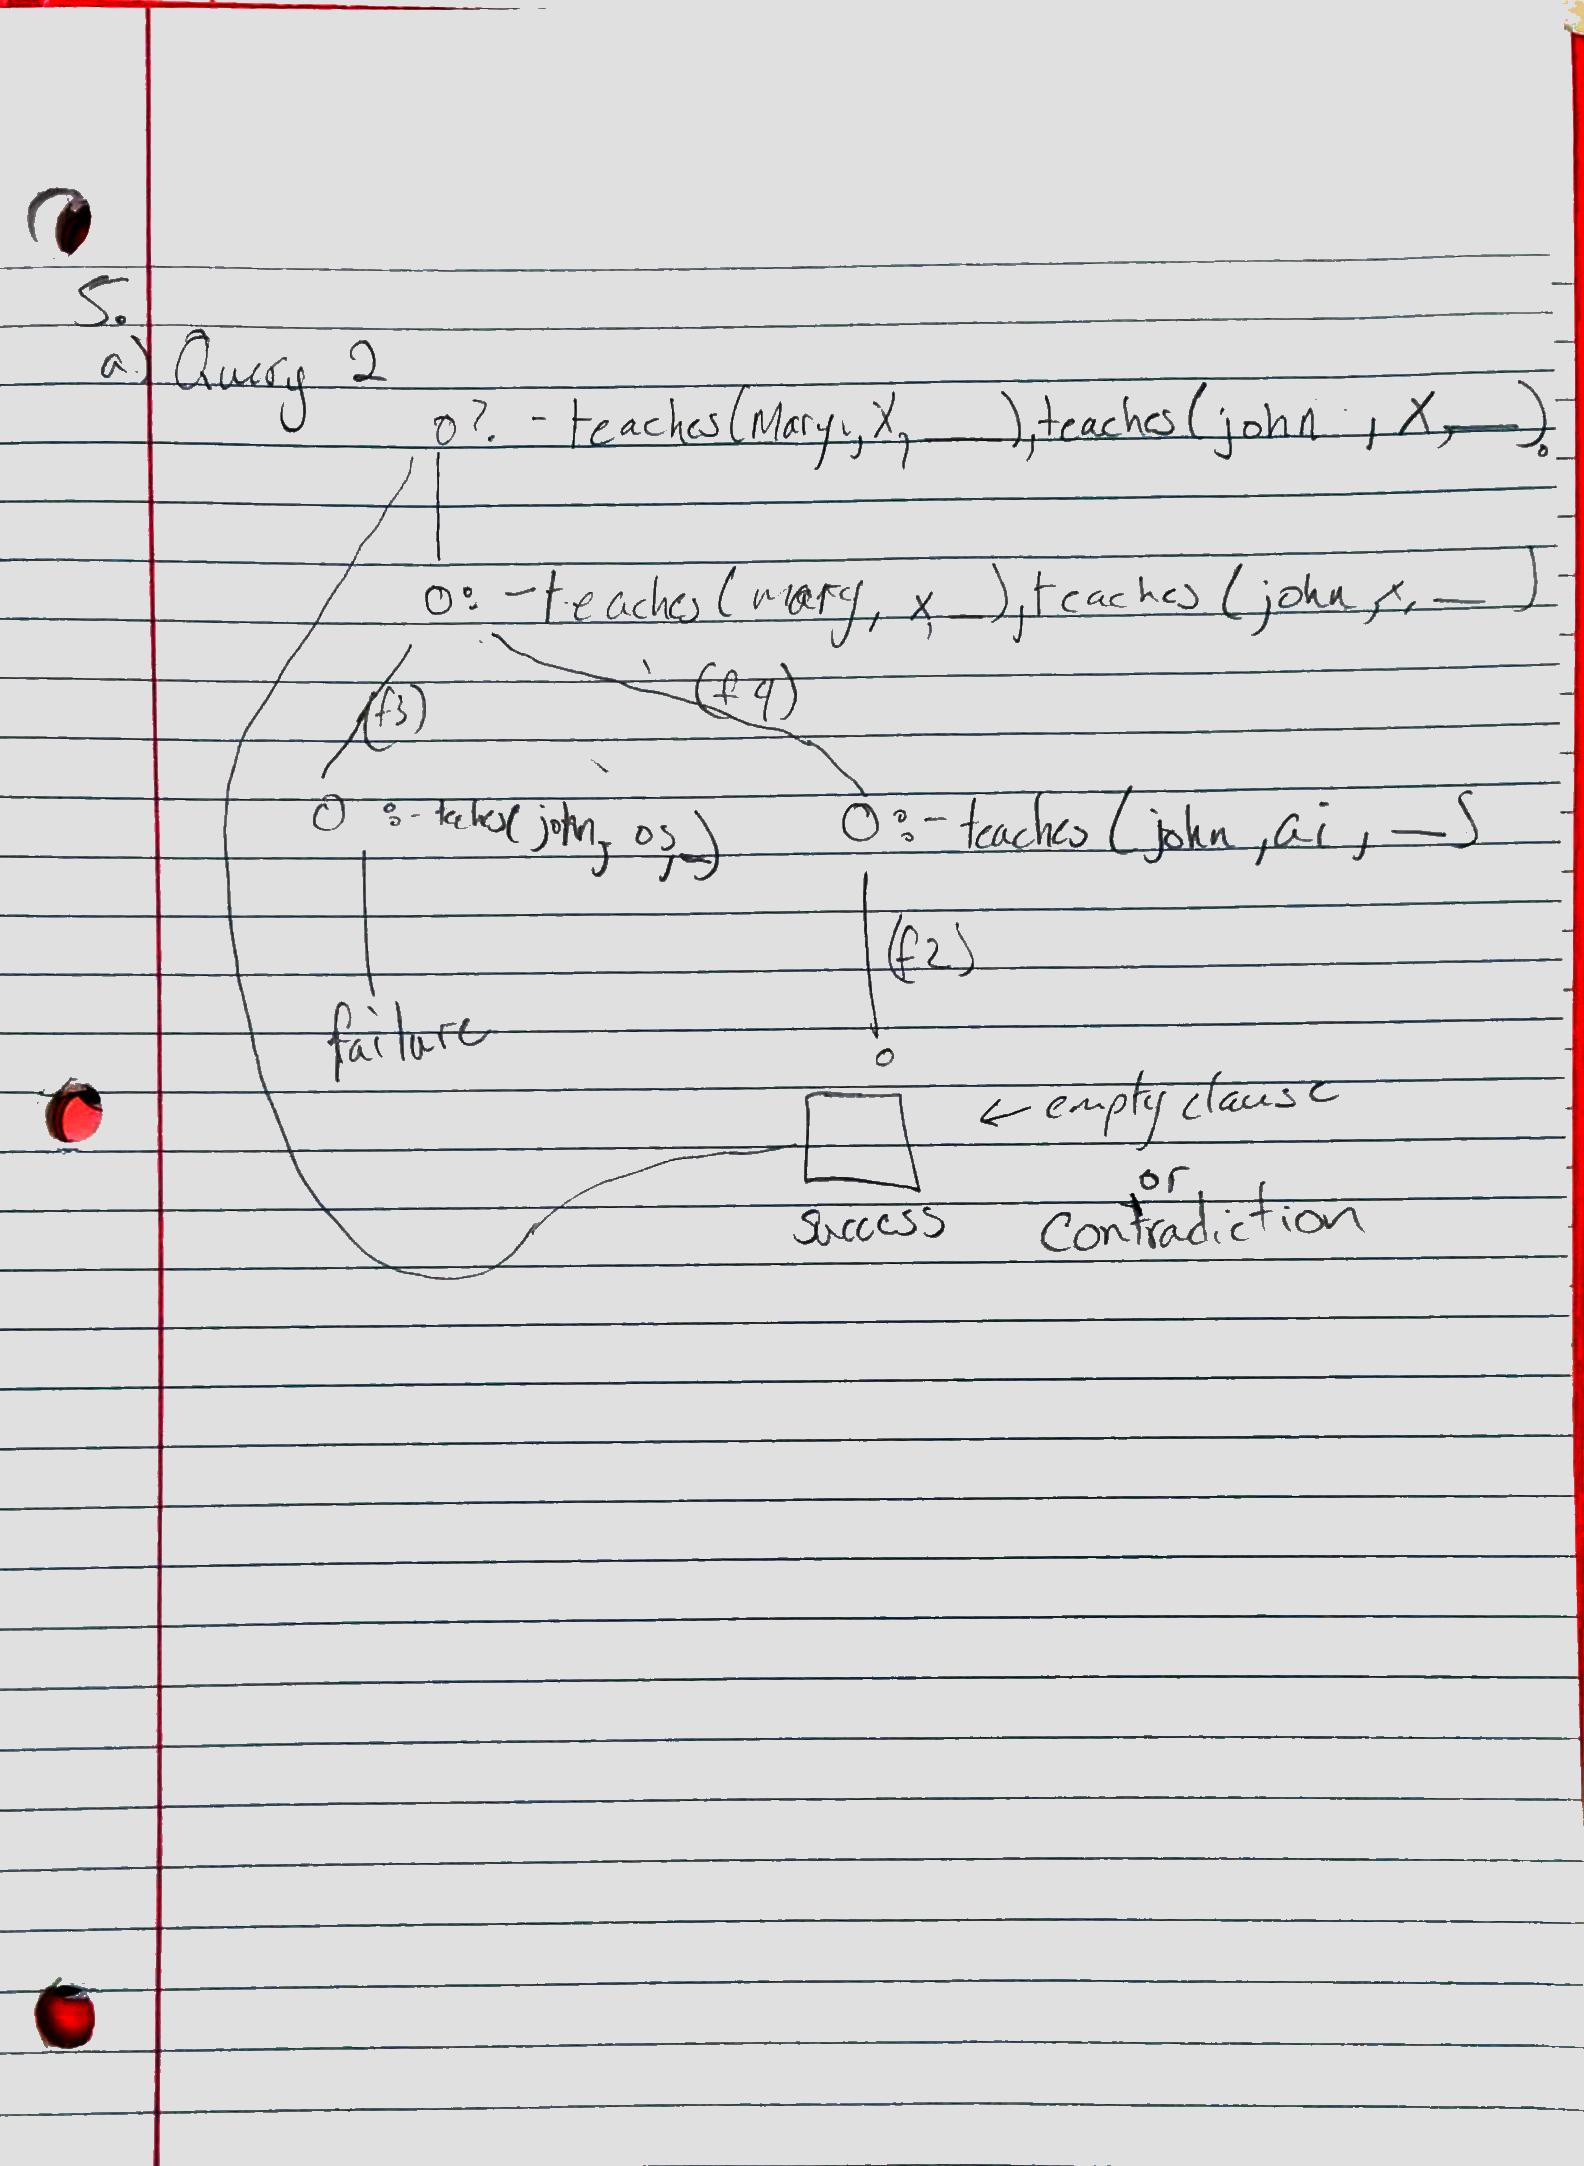 5.
a.) Query 2
o?. - teaches(Mary, X, __), teaches(john, X, __).
o: - teaches(mary, x, __), teaches(john, x, __)
(f3) (f4)
O :- teches(john, os, _) O :- teaches(john, ai, __)
(f2)
failure
o
← empty clause
or
success Contradiction